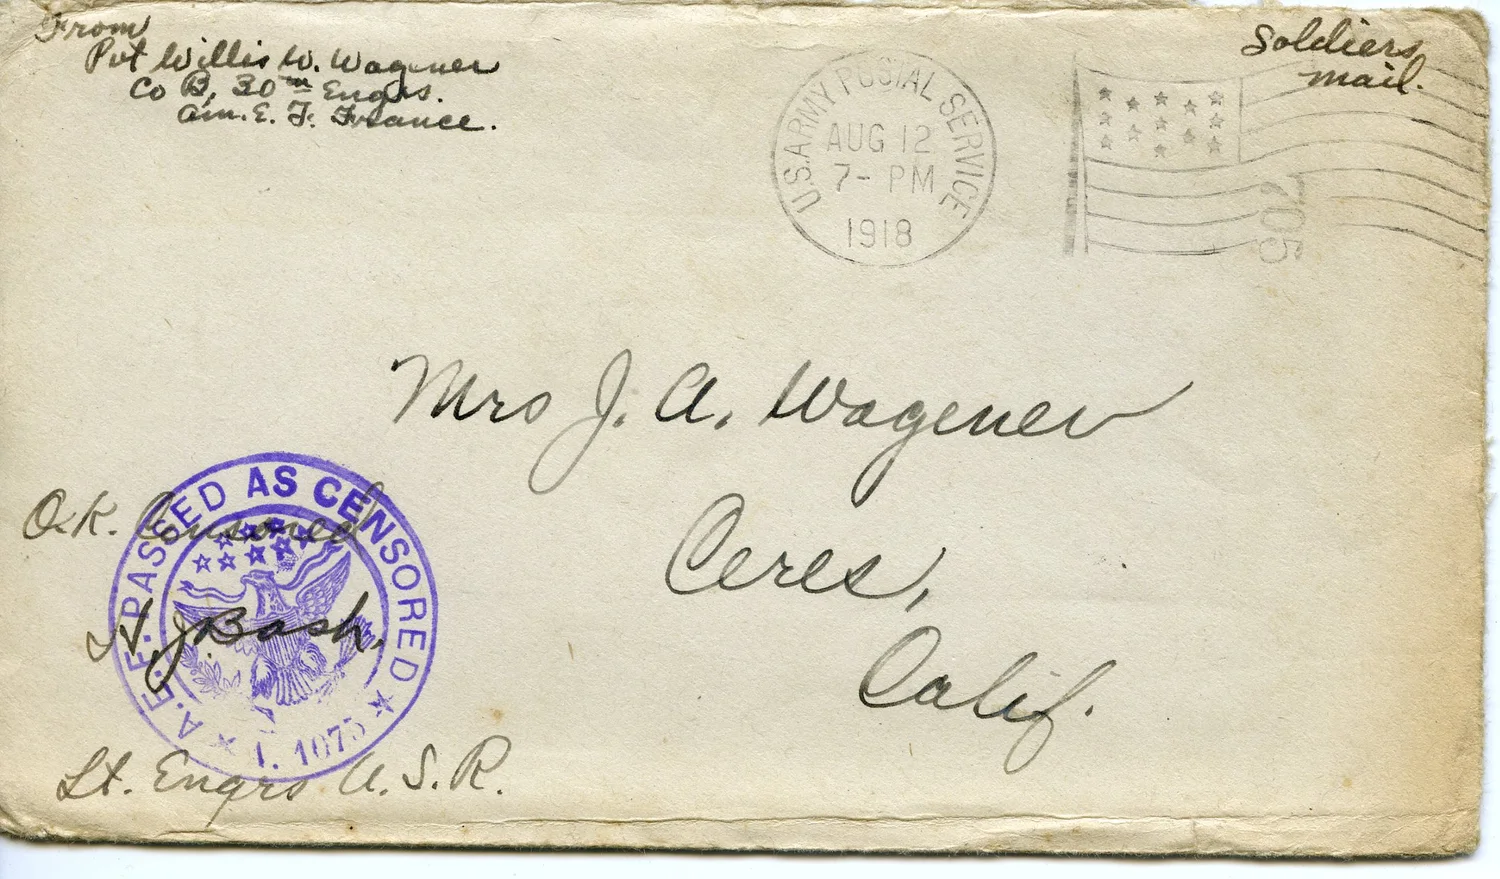 From
Pvt Willis W. Wagener
Co B, 30th Engrs.
Am. E. F. France.
Soldiers
mail.
U.S. ARMY POSTAL SERVICE
AUG 12
7- PM
1918
705
Mrs J. A. Wagener
Ceres,
Calif.
A.E.F. PASSED AS CENSORED
1. 1075
O.K. Censored
J. Bash.
Lt. Engrs U.S.R.